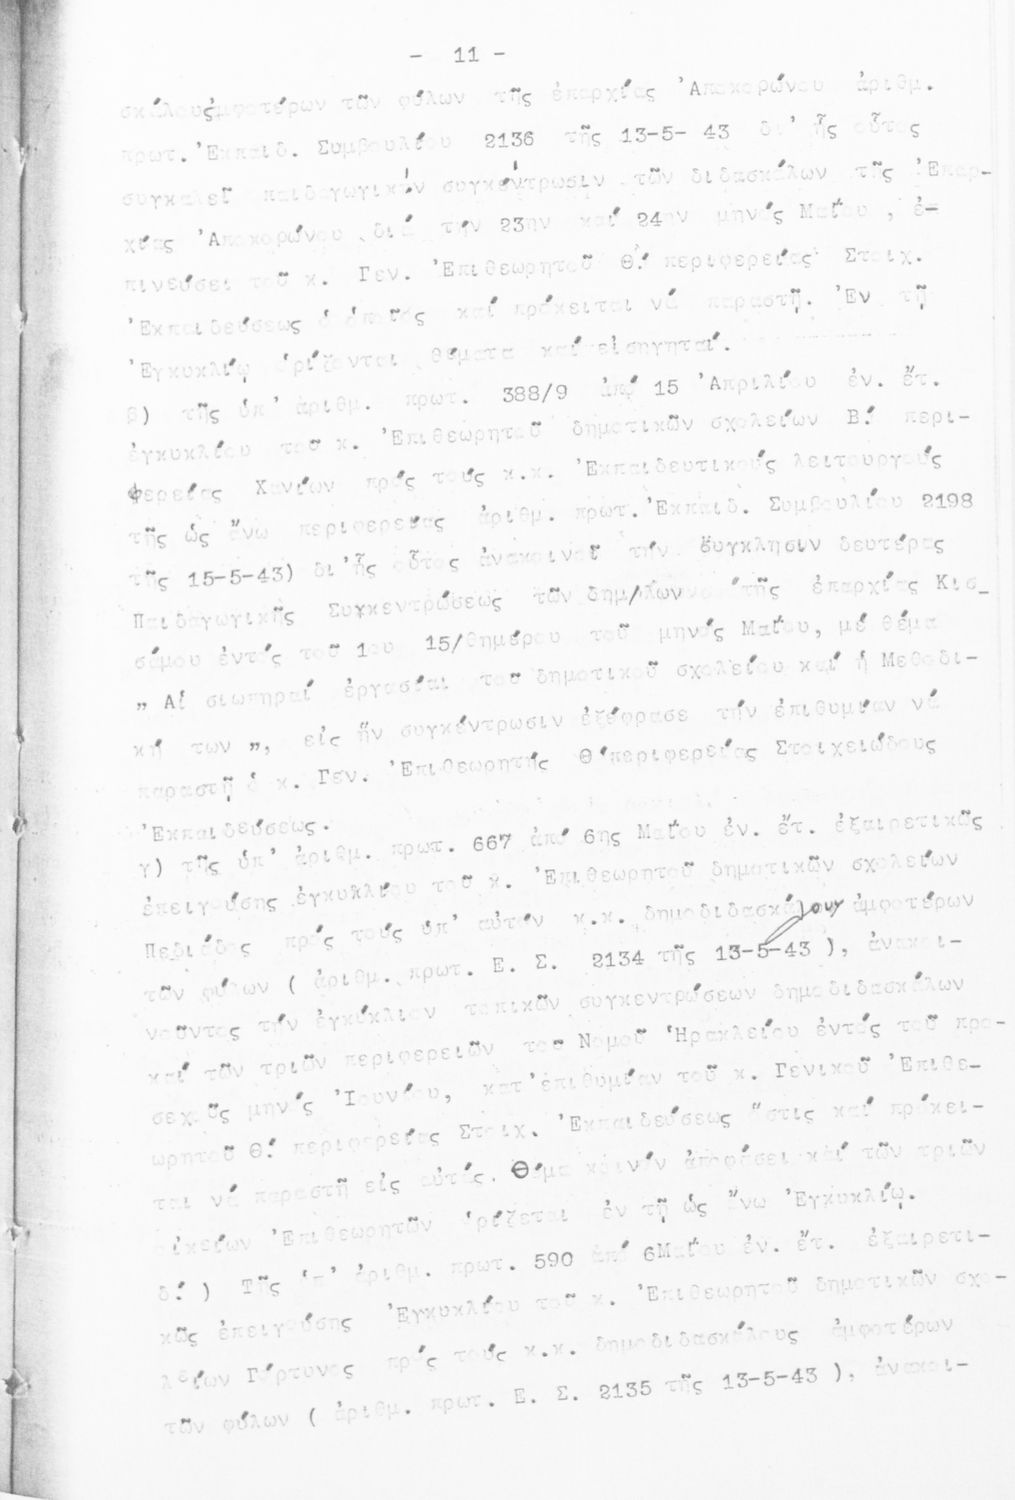 - 11 -
σκάλους ἀμφοτέρων τῶν φύλων τῆς ἐπαρχίας 'Αποκορώνου ἀριθμ.
πρωτ. 'Εκπαιδ. Συμβουλίου 2136 τῆς 13-5- 43 δι' ἧς οὗτος
συγκαλεῖ παιδαγωγικήν συγκέντρωσιν τῶν διδασκάλων τῆς 'Επαρ-
χίας 'Αποκορώνου διά τήν 23ην καί 24ην μηνός Μαΐου , ἐ-
πινεύσει τοῦ κ. Γεν. 'Επιθεωρητοῦ Θ.' περιφερείας Στοιχ.
'Εκπαιδεύσεως ὁ ὁποῖος καί πρόκειται νά παραστῇ. 'Εν τῇ
'Εγκυκλίῳ ὁρίζονται θέματα καί εἰσηγηταί.
β) τῆς ὑπ' ἀριθμ. πρωτ. 388/9 ἀπό 15 'Απριλίου ἐν. ἔτ.
ἐγκυκλίου τοῦ κ. 'Επιθεωρητοῦ δημοτικῶν σχολείων Β.' περι-
φερείας Χανίων πρός τούς κ.κ. 'Εκπαιδευτικούς λειτουργούς
τῆς ὡς ἄνω περιφερείας ἀριθμ. πρωτ. 'Εκπαιδ. Συμβουλίου 2198
τῆς 15-5-43) δι'ἧς οὗτος ἀνακοινοῖ τήν σύγκλησιν δευτέρας
Παιδαγωγικῆς Συγκεντρώσεως τῶν δημ/λων τῆς ἐπαρχίας Κισ_
σάμου ἐντός τοῦ 1ου 15/θημέρου τοῦ μηνός Μαΐου, μέ θέμα
" Αἱ σιωπηραί ἐργασίαι τοῦ δημοτικοῦ σχολείου καί ἡ Μεθοδι-
κή των ", εἰς ἥν συγκέντρωσιν ἐξέφρασε τήν ἐπιθυμίαν νά
παραστῇ ὁ κ. Γεν. 'Επιθεωρητής Θ'περιφερείας Στοιχειώδους
'Εκπαιδεύσεως.
γ) τῆς ὑπ' ἀριθμ. πρωτ. 667 ἀπό 6ης Μαΐου ἐν. ἔτ. ἐξαιρετικῶς
ἐπειγούσης ἐγκυκλίου τοῦ κ. 'Επιθεωρητοῦ δημοτικῶν σχολείων
Πεδιάδος πρός τούς ὑπ' αὐτόν κ.κ. δημοδιδασκάλους ἀμφοτέρων
τῶν φύλων ( ἀριθμ. πρωτ. Ε. Σ. 2134 τῆς 13-5-43 ), ἀνακοι-
νοῦντος τήν ἐγκύκλιον τοπικῶν συγκεντρώσεων δημοδιδασκάλων
καί τῶν τριῶν περιφερειῶν τοῦ Νομοῦ 'Ηρακλείου ἐντός τοῦ προ-
σεχοῦς μηνός 'Ιουνίου, κατ'ἐπιθυμίαν τοῦ κ. Γενικοῦ 'Επιθε-
ωρητοῦ Θ.' περιφερείας Στοιχ. 'Εκπαιδεύσεως ὅστις καί πρόκει-
ται νά παραστῇ εἰς αὐτάς. Θέμα κοινόν ἀποφάσει καί τῶν τριῶν
οἰκείων 'Επιθεωρητῶν ὁρίζεται ἐν τῇ ὡς ἄνω 'Εγκυκλίῳ.
δ.' ) Τῆς ὑπ' ἀριθμ. πρωτ. 590 ἀπό 6Μαΐου ἐν. ἔτ. ἐξαιρετι-
κῶς ἐπειγούσης 'Εγκυκλίου τοῦ κ. 'Επιθεωρητοῦ δημοτικῶν σχο-
λείων Γόρτυνος πρός τούς κ.κ. δημοδιδασκάλους ἀμφοτέρων
τῶν φύλων ( ἀριθμ. πρωτ. Ε. Σ. 2135 τῆς 13-5-43 ), ἀνακοι-